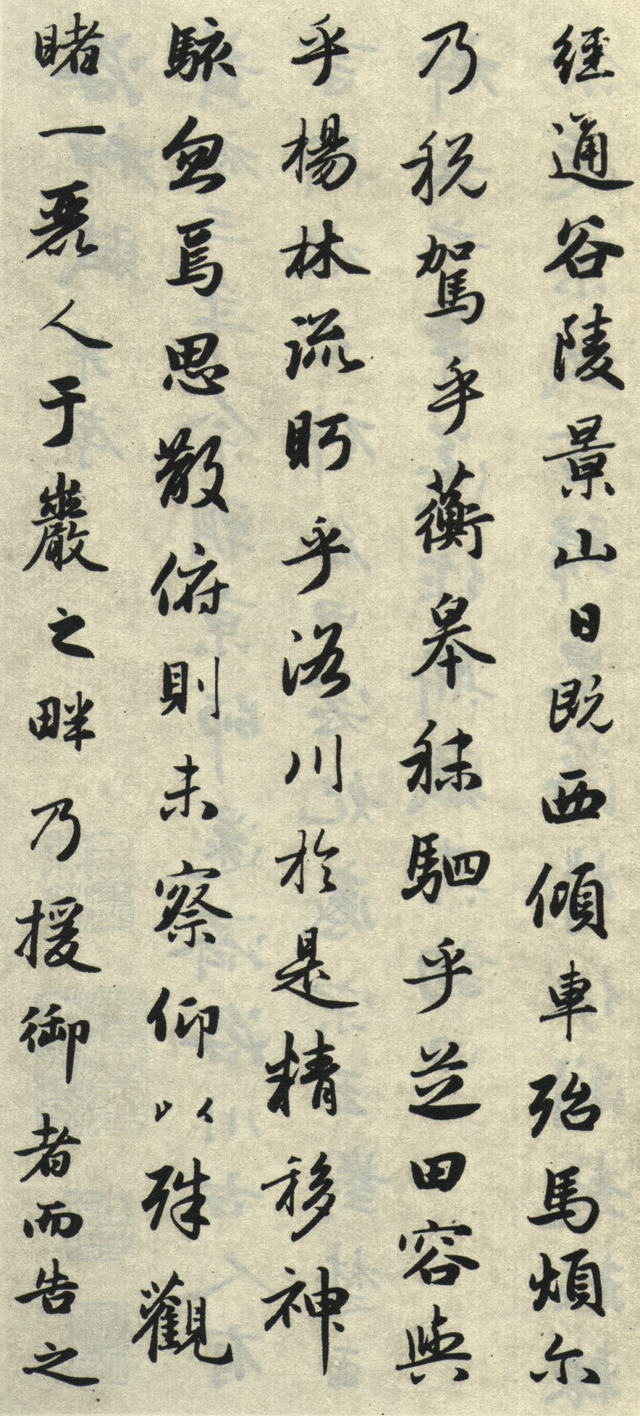 經通谷陵景山日既西傾車殆馬煩尒
乃税駕乎蘅皋秣駟乎芝田容與
乎楊林流眄乎洛川於是精移神
駭忽焉思散俯則未察仰以殊觀
睹一麗人于巖之畔乃援御者而告之